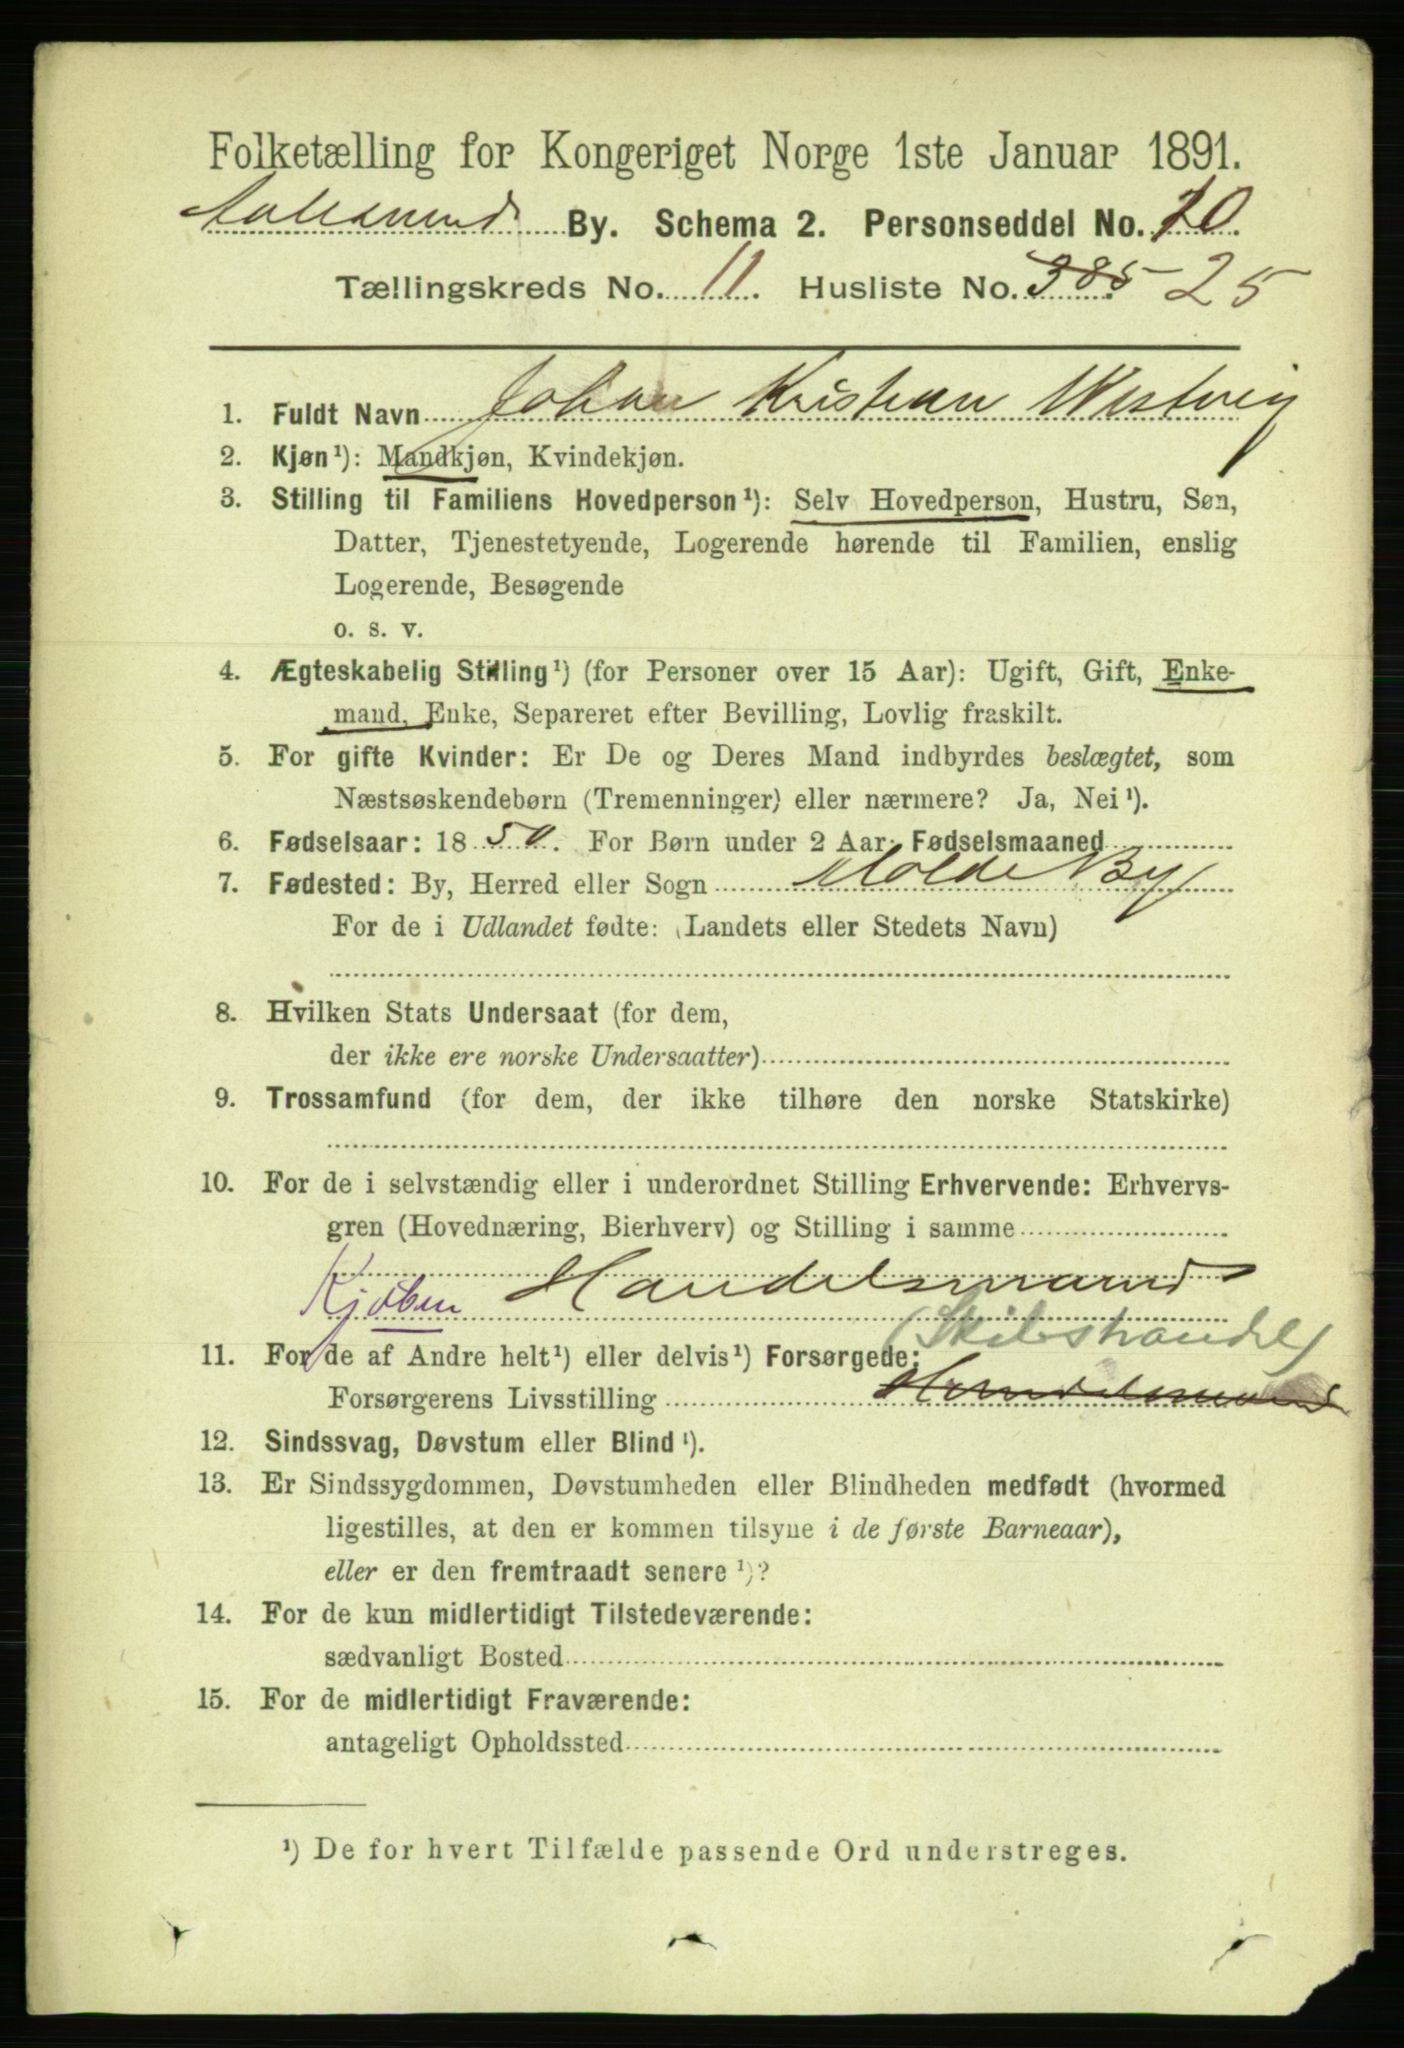 Folketælling for Kongeriget Norge 1ste Januar 1891.
Aalesund By. Schema 2. Personseddel No. 10.
Tællingskreds No. 11. Husliste No. 385 25
1. Fuldt Navn Johan Kristian Westvig
2. Kjøn¹): Mandkjøn, Kvindekjøn.
3. Stilling til Familiens Hovedperson¹): Selv Hovedperson, Hustru, Søn,
Datter, Tjenestetyende, Logerende hørende til Familien, enslig
Logerende, Besøgende
o. s. v.
4. Ægteskabelig Stilling¹) (for Personer over 15 Aar): Ugift, Gift, Enke-
mand, Enke, Separeret efter Bevilling, Lovlig fraskilt.
5. For gifte Kvinder: Er De og Deres Mand indbyrdes beslægtet, som
Næstsøskendebørn (Tremenninger) eller nærmere? Ja, Nei¹).
6. Fødselsaar: 1850. For Børn under 2 Aar: Fødselsmaaned
7. Fødested: By, Herred eller Sogn Molde By
For de i Udlandet fødte: (Landets eller Stedets Navn)
8. Hvilken Stats Undersaat (for dem,
der ikke ere norske Undersaatter)
9. Trossamfund (for dem, der ikke tilhøre den norske Statskirke)
10. For de i selvstændig eller i underordnet Stilling Erhvervende: Erhvervs-
gren (Hovednæring, Bierhverv) og Stilling i samme
Kjøben Handelsmand
(Skibshandel)
11. For de af Andre helt¹) eller delvis¹) Forsørgede:
Forsørgerens Livsstilling Handelsmand
12. Sindssvag, Døvstum eller Blind¹).
13. Er Sindssygdommen, Døvstumheden eller Blindheden medfødt (hvormed
ligestilles, at den er kommen tilsyne i de første Barneaar),
eller er den fremtraadt senere¹)?
14. For de kun midlertidigt Tilstedeværende:
sædvanligt Bosted
15. For de midlertidigt Fraværende:
antageligt Opholdssted
¹) De for hvert Tilfælde passende Ord understreges.